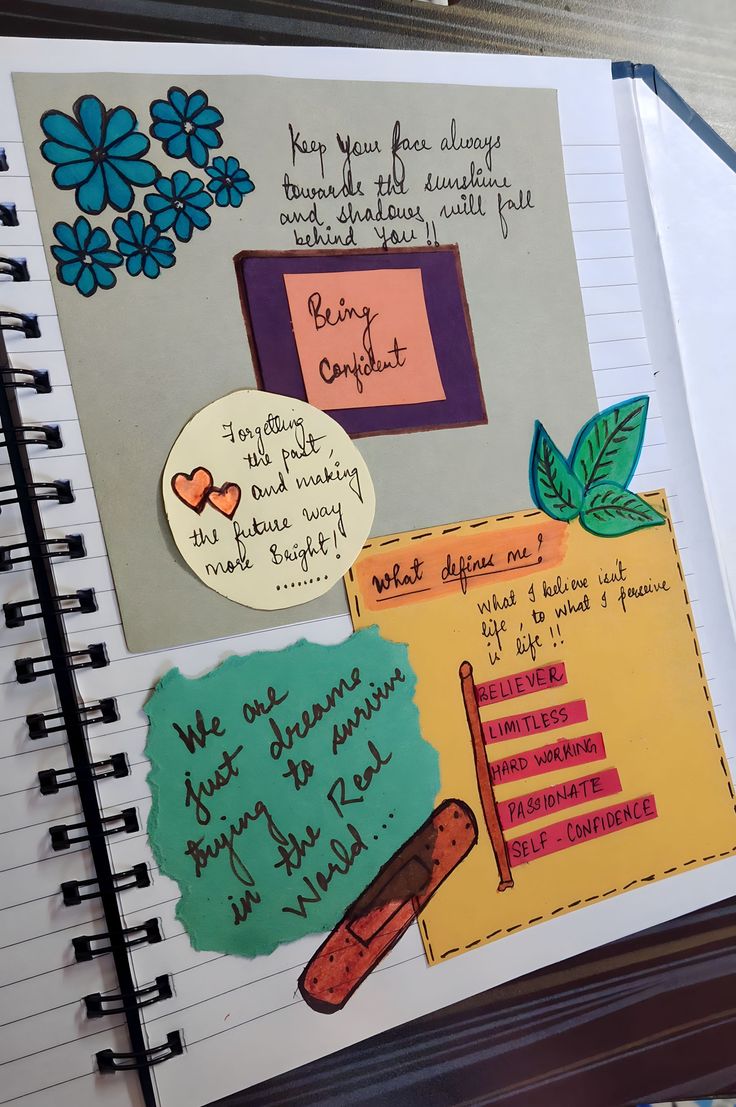 Keep Your face always
towards the sunshine
and shadows will fall
behind you!!
Being
Confident
Forgetting
the past,
and making
the future way
more Bright!
........
What defines me?
What I believe isn't
life, to what I perseive
is life!!
BELIEVER
LIMITLESS
HARD WORKING
PASSIONATE
SELF - CONFIDENCE
We are
just dreams
trying to survive
in the Real
World...